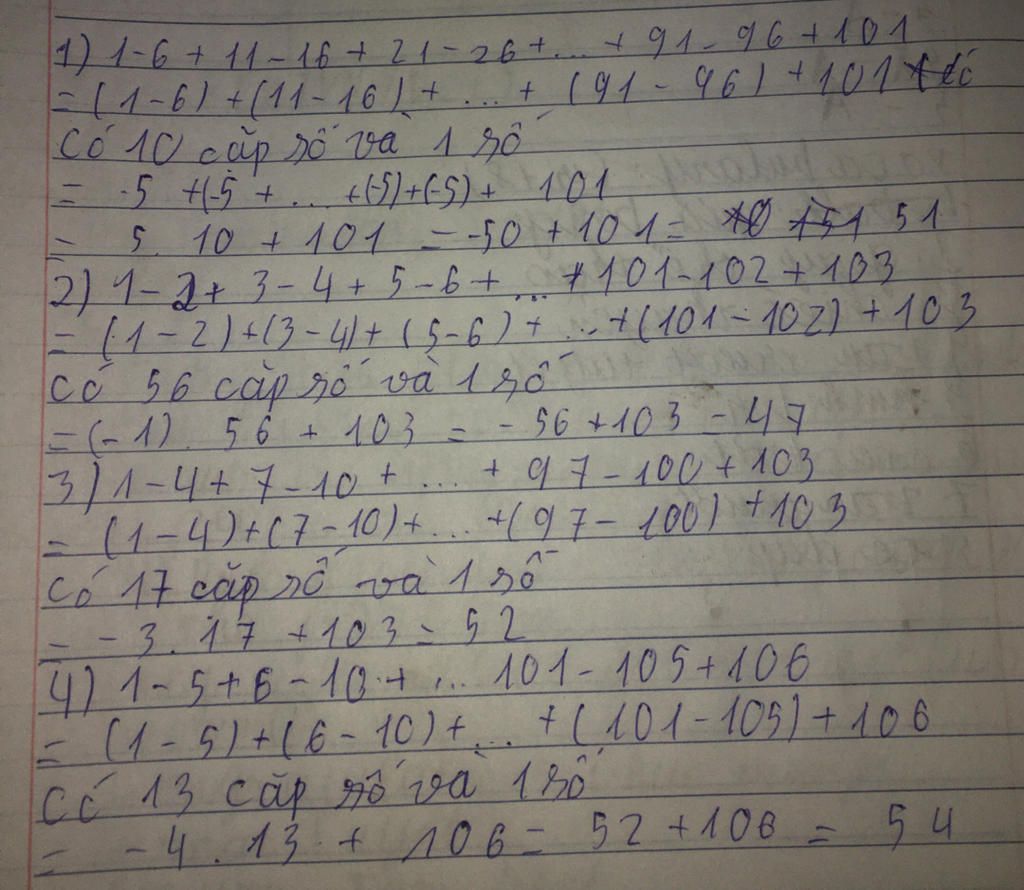 1) 1-6 + 11 - 16 + 21 - 26 + ... + 91 - 96 + 101
= (1-6) + (11 - 16) + ... + (91 - 96) + 101
Có 10 cặp số và 1 số
= -5 +(-5 + ... +(-5)+(-5)+ 101
= 5. 10 + 101 = -50 + 101 = 51
2) 1 - 2 + 3 - 4 + 5 - 6 + ... + 101 - 102 + 103
= (1 - 2) + (3 - 4) + (5 - 6) + ... + (101 - 102) + 103
Có 56 cặp số và 1 số
= (-1). 56 + 103 = - 56 + 103 = 47
3) 1 - 4 + 7 - 10 + ... + 97 - 100 + 103
= (1 - 4) + (7 - 10) + ... + (97 - 100) + 103
Có 17 cặp số và 1 số
= - 3. 17 + 103 = 52
4) 1 - 5 + 6 - 10 + ... 101 - 105 + 106
= (1 - 5) + (6 - 10) + ... + (101 - 105) + 106
Có 13 cặp số và 1 số
= - 4. 13 + 106 = 52 + 106 = 54